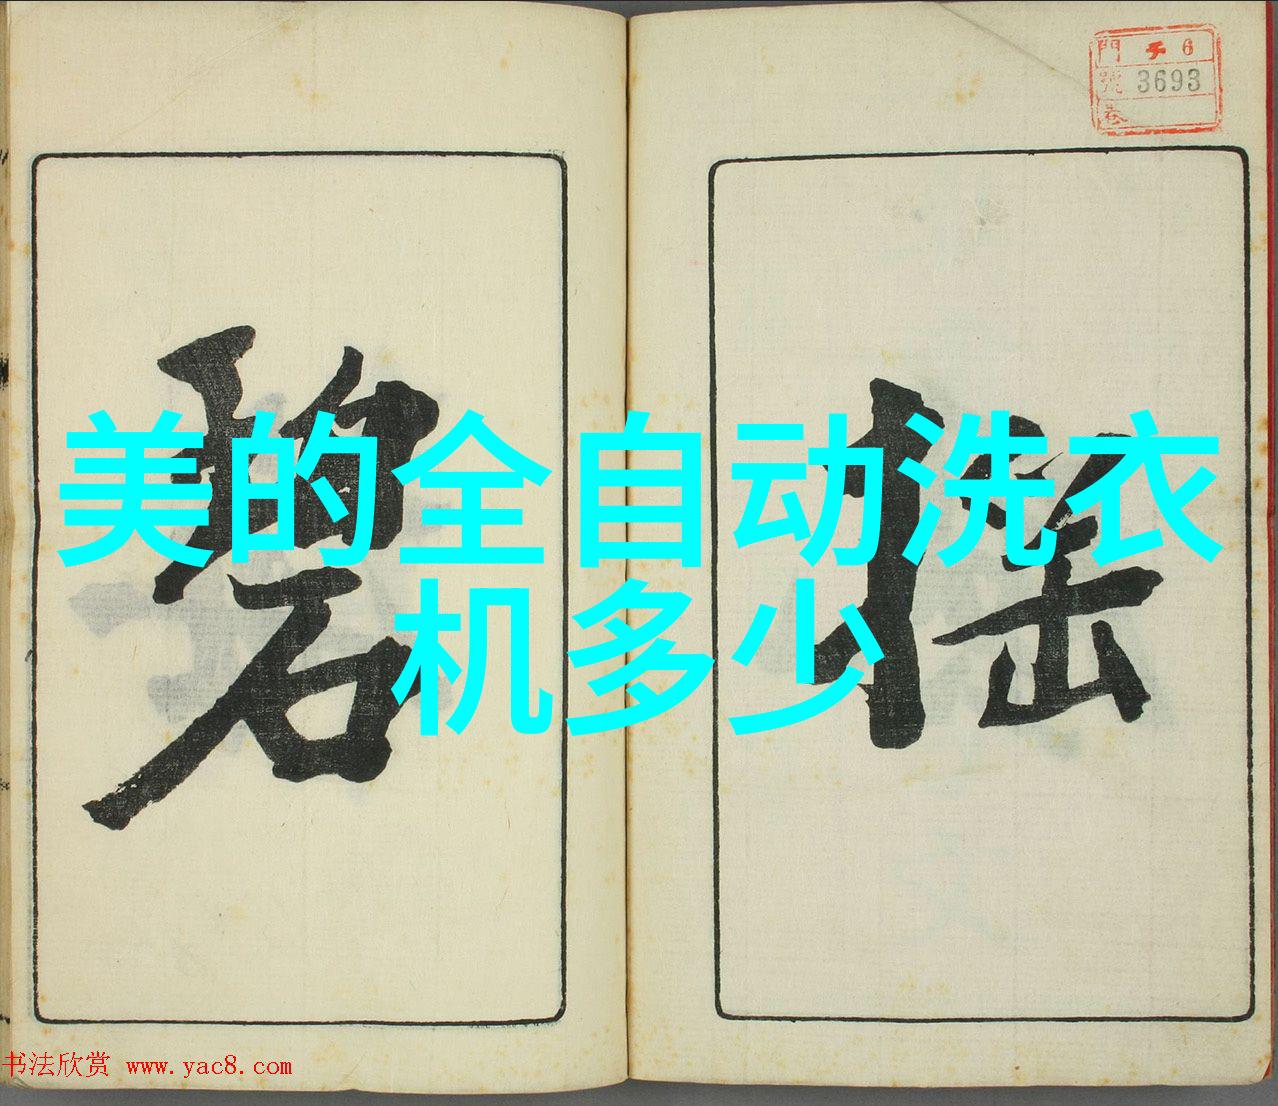 門 6
號 3693
卷
搖
碧
美的全自动洗衣
机多少
书法欣赏 www.yac8.com